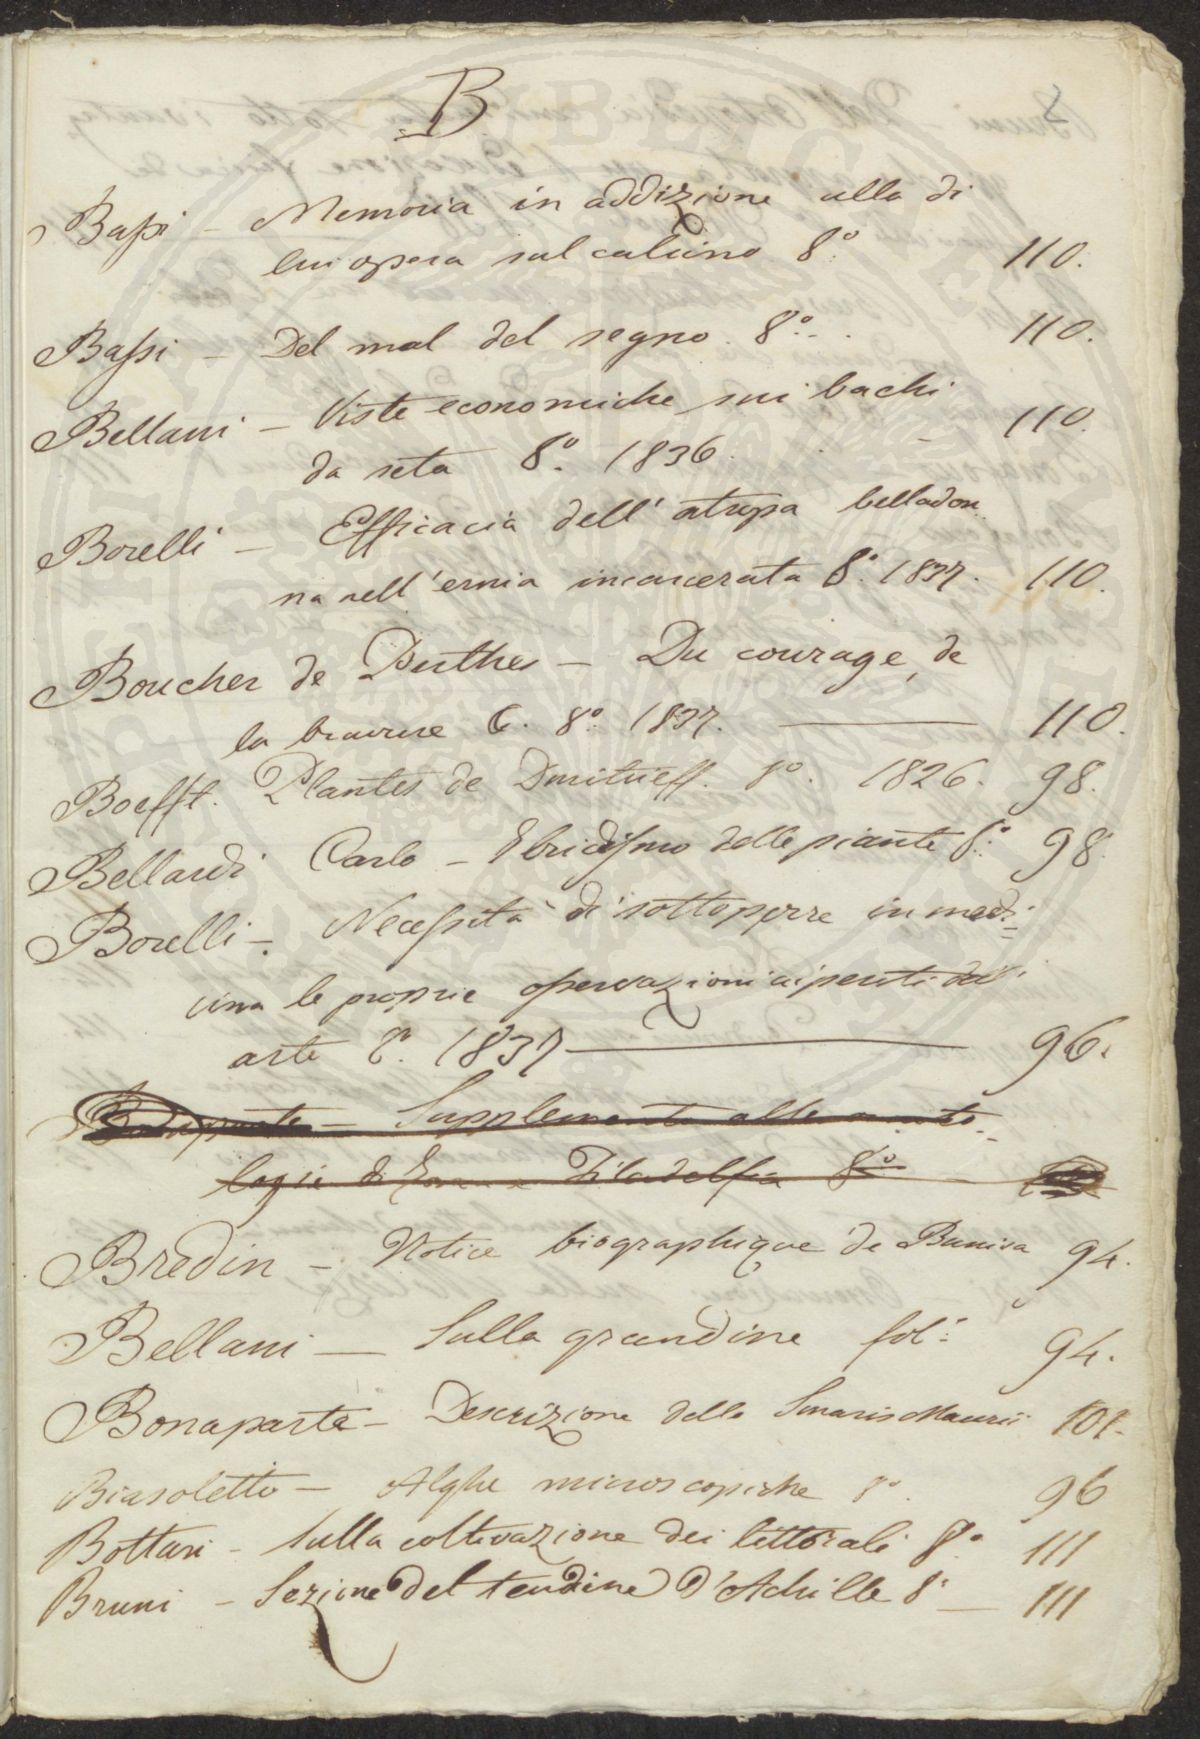 B.
Bassi - Memoria in addizione alla di
lui opera sul calcino 8.° 110.
Bassi - Del mal del segno. 8.° 110.
Bellani - Viste economiche sui bachi
da seta 8.° 1836. - 110.
Borelli - Efficacia dell' atropa belladon
na nell'ernia incarcerata 8.° 1837. 110.
Boucher de Perthes - Du courage, de
la bravure 8.° 1837. 110.
Plantes de 8.° 1826. 98.
Bellardi Carlo - Ibridismo delle piante 8.° 98.
Borelli - Necessità di sottoporre in medi
cina le proprie osservazioni ai periti dell'
arte 8.° 1837 96.
Supplemento alla
logia di Filadelfia 8.°
Bredin - Notice biographique de Buniva 94.
Bellani - Sulla grandine fol.° 94.
Bonaparte - Descrizione dello Smaris Maurii 101.
Biasoletto - Alghe microscopiche 8.° 96
Bottari - Sulla coltivazione dei littorali 8.° 111
Bruni - Sezione del tendine d'Achille 8.° - 111